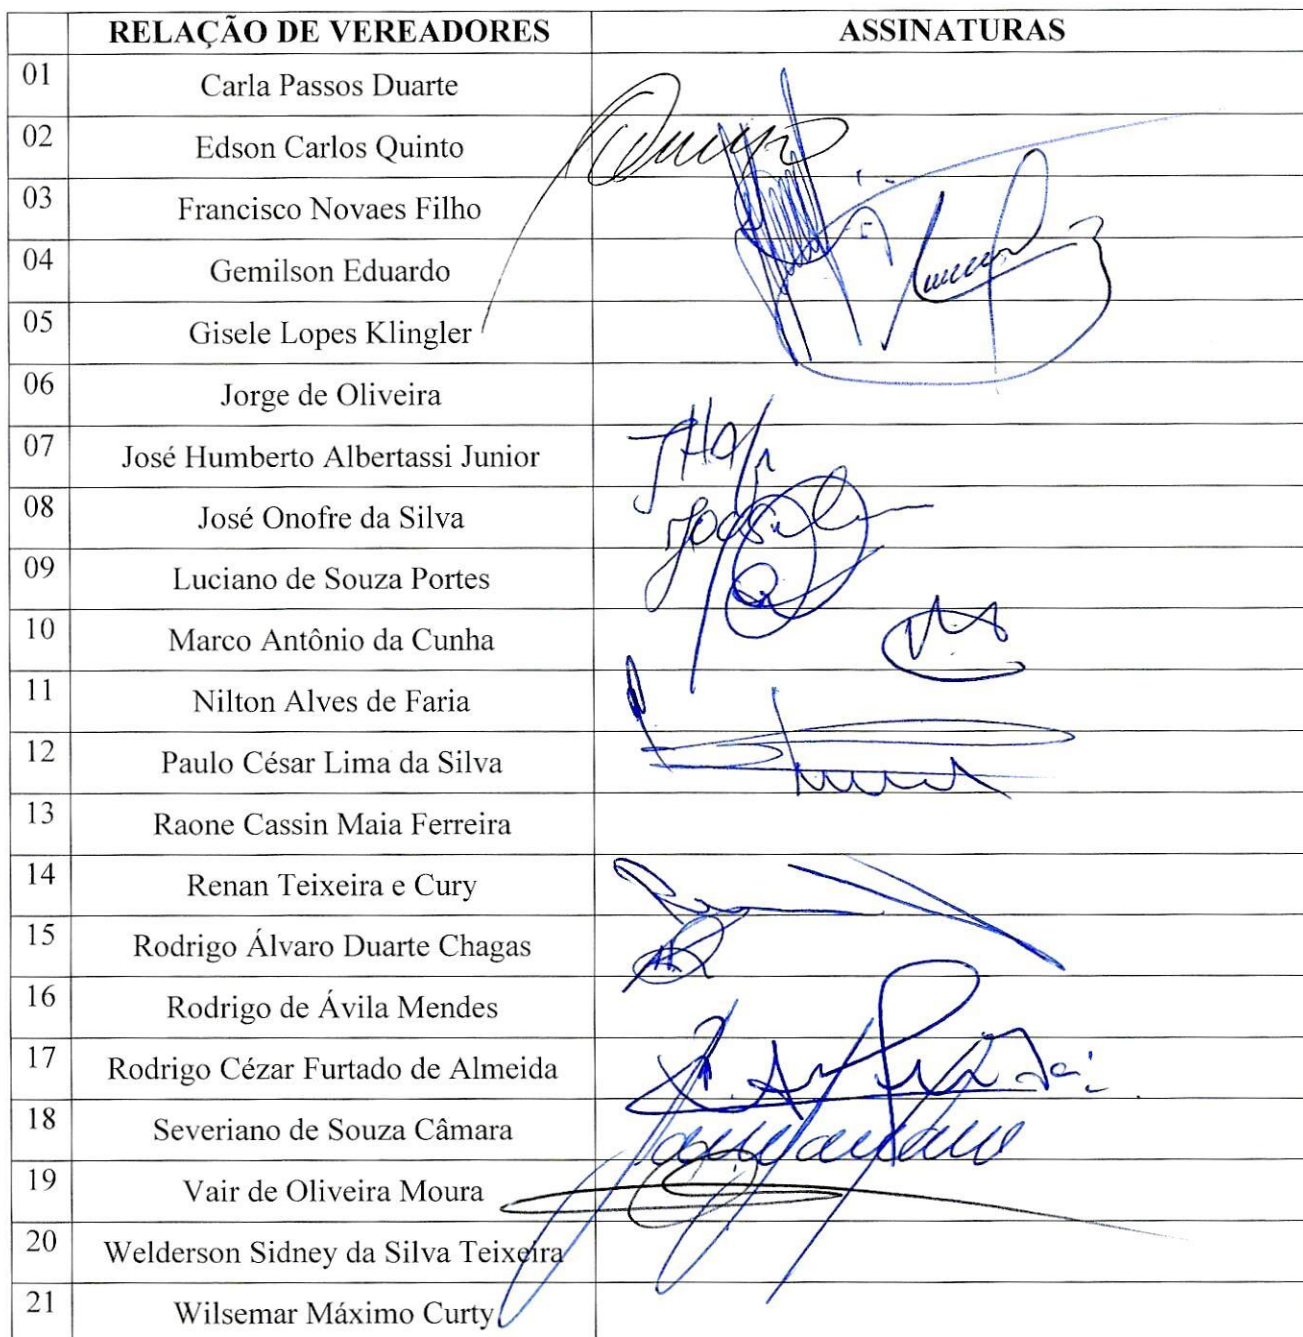 RELAÇÃO DE VEREADORES ASSINATURAS
01 Carla Passos Duarte
02 Edson Carlos Quinto
03 Francisco Novaes Filho
04 Gemilson Eduardo
05 Gisele Lopes Klingler
06 Jorge de Oliveira
07 José Humberto Albertassi Junior
08 José Onofre da Silva
09 Luciano de Souza Portes
10 Marco Antônio da Cunha
11 Nilton Alves de Faria
12 Paulo César Lima da Silva
13 Raone Cassin Maia Ferreira
14 Renan Teixeira e Cury
15 Rodrigo Álvaro Duarte Chagas
16 Rodrigo de Ávila Mendes
17 Rodrigo Cézar Furtado de Almeida
18 Severiano de Souza Câmara
19 Vair de Oliveira Moura
20 Welderson Sidney da Silva Teixeira
21 Wilsemar Máximo Curty